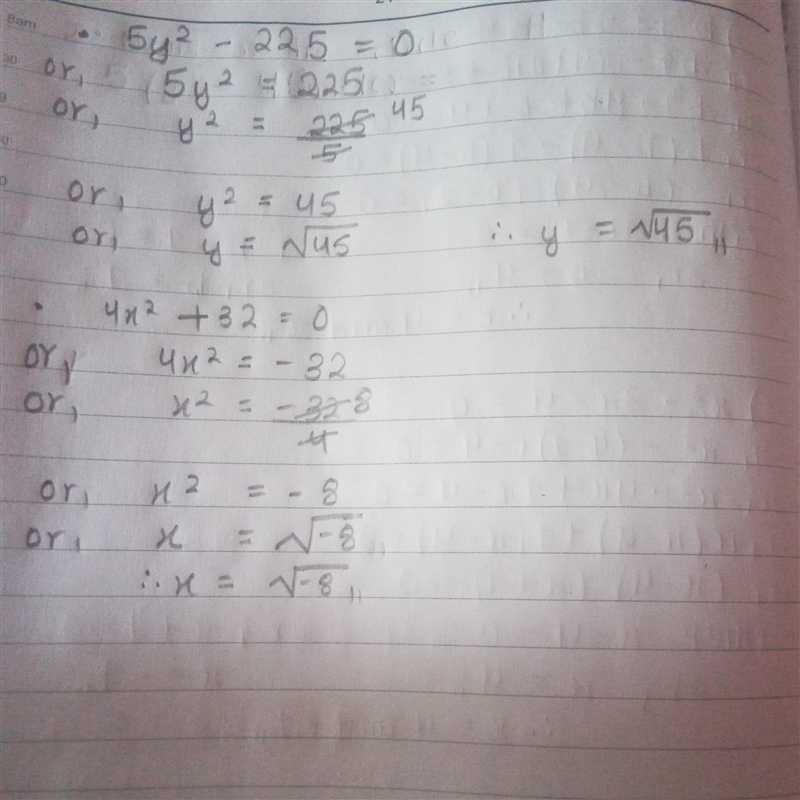 8am
• 5y² - 225 = 0
30
or, 5y² = 225
9
or, y² = 225/5 45
or, y² = 45
or, y = √45 ∴ y = √45,,
• 4x² + 32 = 0
or, 4x² = - 32
or, x² = -32/4 8
or, x² = - 8
or, x = √-8,,
∴ x = √-8,,